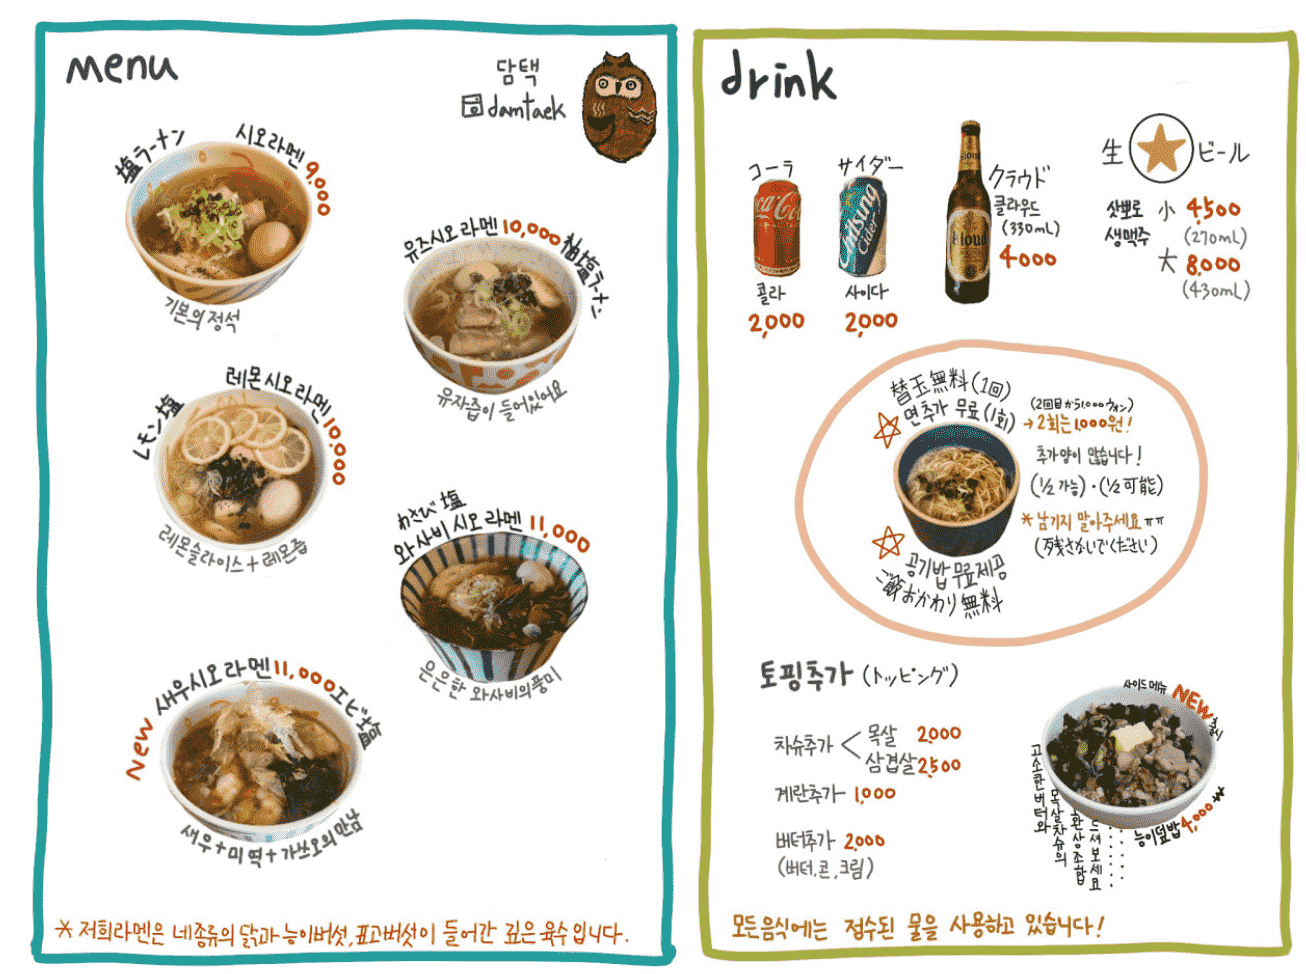 menu
담택
damtaek
塩ラーメン
시오라멘 9,000
기본의 정석
유즈시오라멘 10,000
柚塩ラーメン
유자즙이 들어있어요
레몬시오라멘 10,000
レモン塩
레몬슬라이스+레몬즙
わさび塩
와사비 시오라멘 11,000
은은한 와사비의풍미
New 새우시오라멘 11,000
エビ塩
새우+미역+가쓰오의 만남
* 저희라멘은 네종류의 닭과 능이버섯, 표고버섯이 들어간 깊은 육수입니다.
drink
コーラ
Coca-Cola
콜라
2,000
サイダー
Chilsung Cider
사이다
2,000
クラウド
Kloud
클라우드
(330mL)
4000
生★ビール
삿뽀로
생맥주
小 4,500
(270mL)
大 8,000
(430mL)
替玉無料(1回)
면추가 무료(1회)
(2回目から1,000ウォン)
→2회는 1,000원!
추가양이 많습니다!
(½ 가능)・(½ 可能)
*남기지 말아주세요 ㅠㅠ
(残さないでください)
공기밥 무료제공
ご飯おかわり無料
토핑추가 (トッピング)
차슈추가 < 목살 2,000
삼겹살 2,500
계란추가 1,000
버터추가 2,000
(버터, 콘, 크림)
사이드메뉴 NEW 출시
능이덮밥 4,000
고소한버터와
목살차슈의
환상조합
드셔보세요
모든음식에는 정수된 물을 사용하고 있습니다!